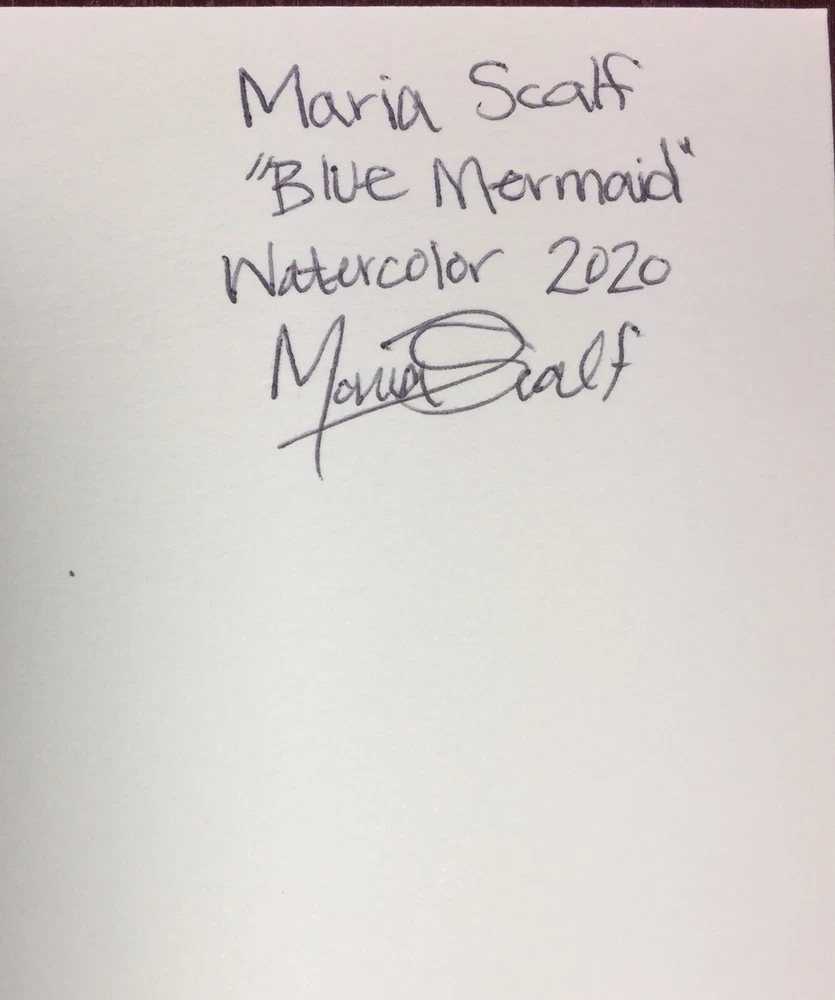 Maria Scalf
"Blue Mermaid"
Watercolor 2020
Maria Scalf